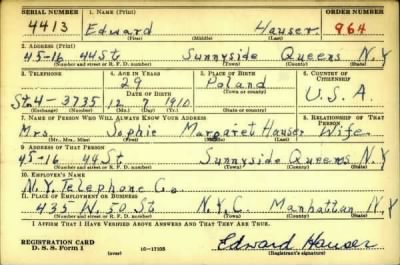 SERIAL NUMBER 1. NAME (Print) ORDER NUMBER
4413 Edward Hauser 964
(First) (Middle) (Last)
2. ADDRESS (Print)
45-16 44 St Sunnyside Queens N.Y
(Number and street or R. F. D. number) (Town) (County) (State)
3. TELEPHONE 4. AGE IN YEARS 5. PLACE OF BIRTH 6. COUNTRY OF CITIZENSHIP
29 Poland
DATE OF BIRTH (Town or county)
St4-3735 12 7 1910 U.S.A.
(Exchange) (Number) (Mo.) (Day) (Yr.) (State or country)
7. NAME OF PERSON WHO WILL ALWAYS KNOW YOUR ADDRESS 8. RELATIONSHIP OF THAT PERSON
Mrs. Sophie Margaret Hauser Wife
(Mr., Mrs., Miss) (First) (Middle) (Last)
9. ADDRESS OF THAT PERSON
45-16 44 St Sunnyside Queens N.Y
(Number and street or R. F. D. number) (Town) (County) (State)
10. EMPLOYER'S NAME
N.Y. Telephone Co.
11. PLACE OF EMPLOYMENT OR BUSINESS
435 W. 50 St N.Y.C. Manhattan N.Y
(Number and street or R. F. D. number) (Town) (County) (State)
I AFFIRM THAT I HAVE VERIFIED ABOVE ANSWERS AND THAT THEY ARE TRUE.
REGISTRATION CARD
D. S. S. Form 1 (over) 16-17105
Edward Hauser
(Registrant's signature)